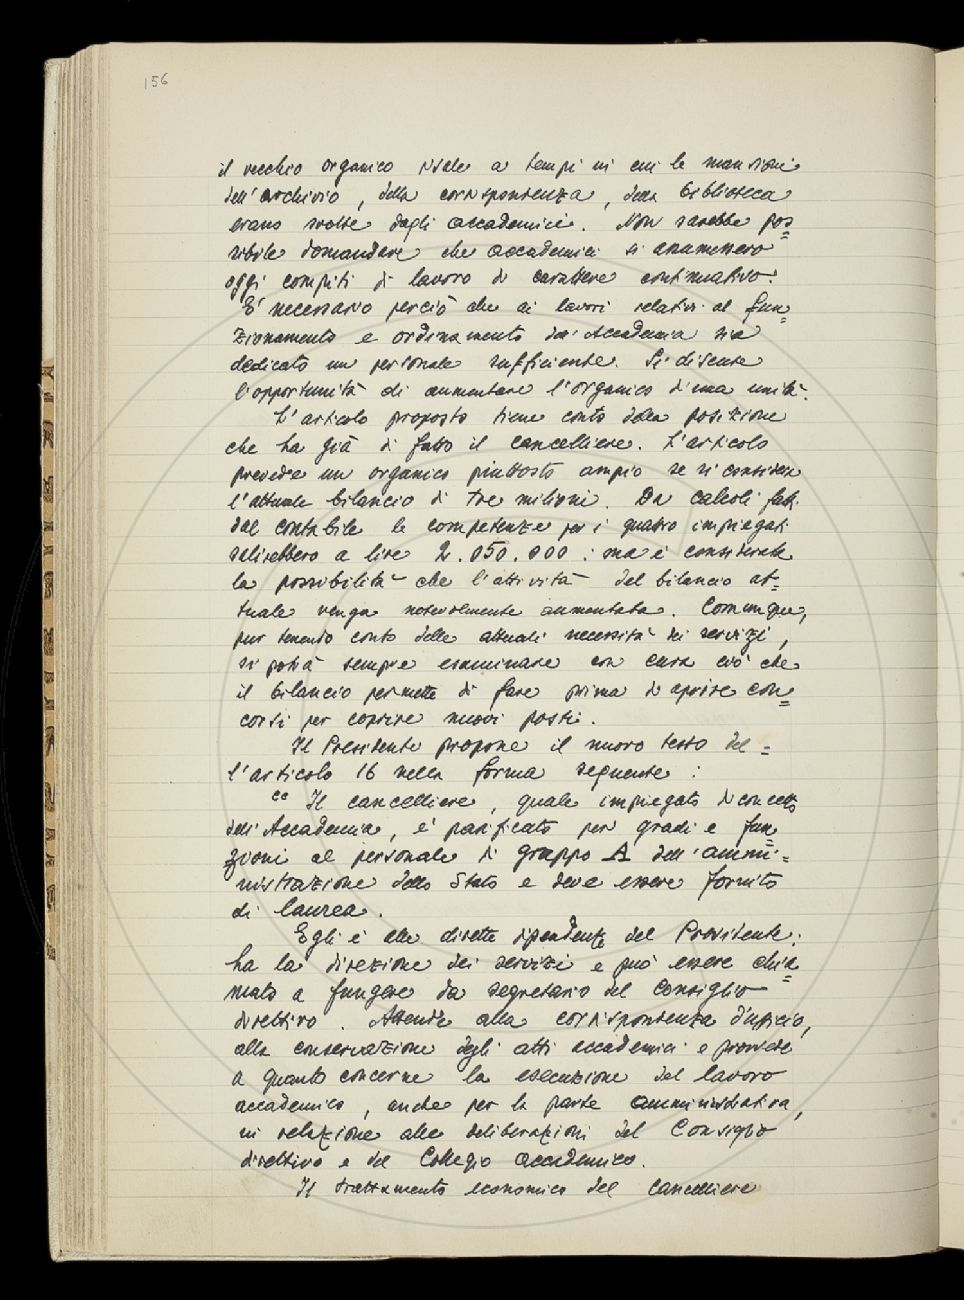 156
il vecchio organico risale a tempi in cui le mansioni
dell'archivio, della corrispondenza, della biblioteca
erano svolte dagli accademici. Non sarebbe pos=
sibile domandare che accademici si assumessero
oggi compiti di lavoro di carattere continuativo.
E' necessario perciò che ai lavori relativi al fun=
zionamento e ordinamento dell'Accademia sia
dedicato un personale sufficiente. Si discute
l'opportunità di aumentare l'organico d'una unità.
L'articolo proposto tiene conto della posizione
che ha già di fatto il cancelliere. L'articolo
prevede un organico piuttosto ampio se si considera
l'attuale bilancio di tre milioni. Da calcoli fatti
dal contabile le competenze per i quattro impiegati
salirebbero a lire 2.050.000: ma è considerata
la possibilità che l'attività del bilancio at=
tuale venga notevolmente aumentata. Comunque,
pur tenendo conto delle attuali necessità dei servizi,
si potrà sempre esaminare con cura ciò che
il bilancio permette di fare prima di aprire con=
corsi per coprire nuovi posti.
Il Presidente propone il nuovo testo del=
l'articolo 16 nella forma seguente:
"Il cancelliere, quale impiegato di concetto
dell'Accademia, e' parificato per gradi e fun=
zioni al personale di gruppo A dell'ammi=
nistrazione dello Stato e deve essere fornito
di laurea.
Egli è alla diretta dipendenza del Presidente:
ha la direzione dei servizi e può essere chia=
mato a fungere da segretario del Consiglio
direttivo. Attende alla corrispondenza d'ufficio,
alla conservazione degli atti accademici e provvede
a quanto concerne la esecuzione del lavoro
accademico, anche per la parte amministrativa,
in relazione alle deliberazioni del Consiglio
direttivo e del Collegio accademico.
Il trattamento economico del Cancelliere